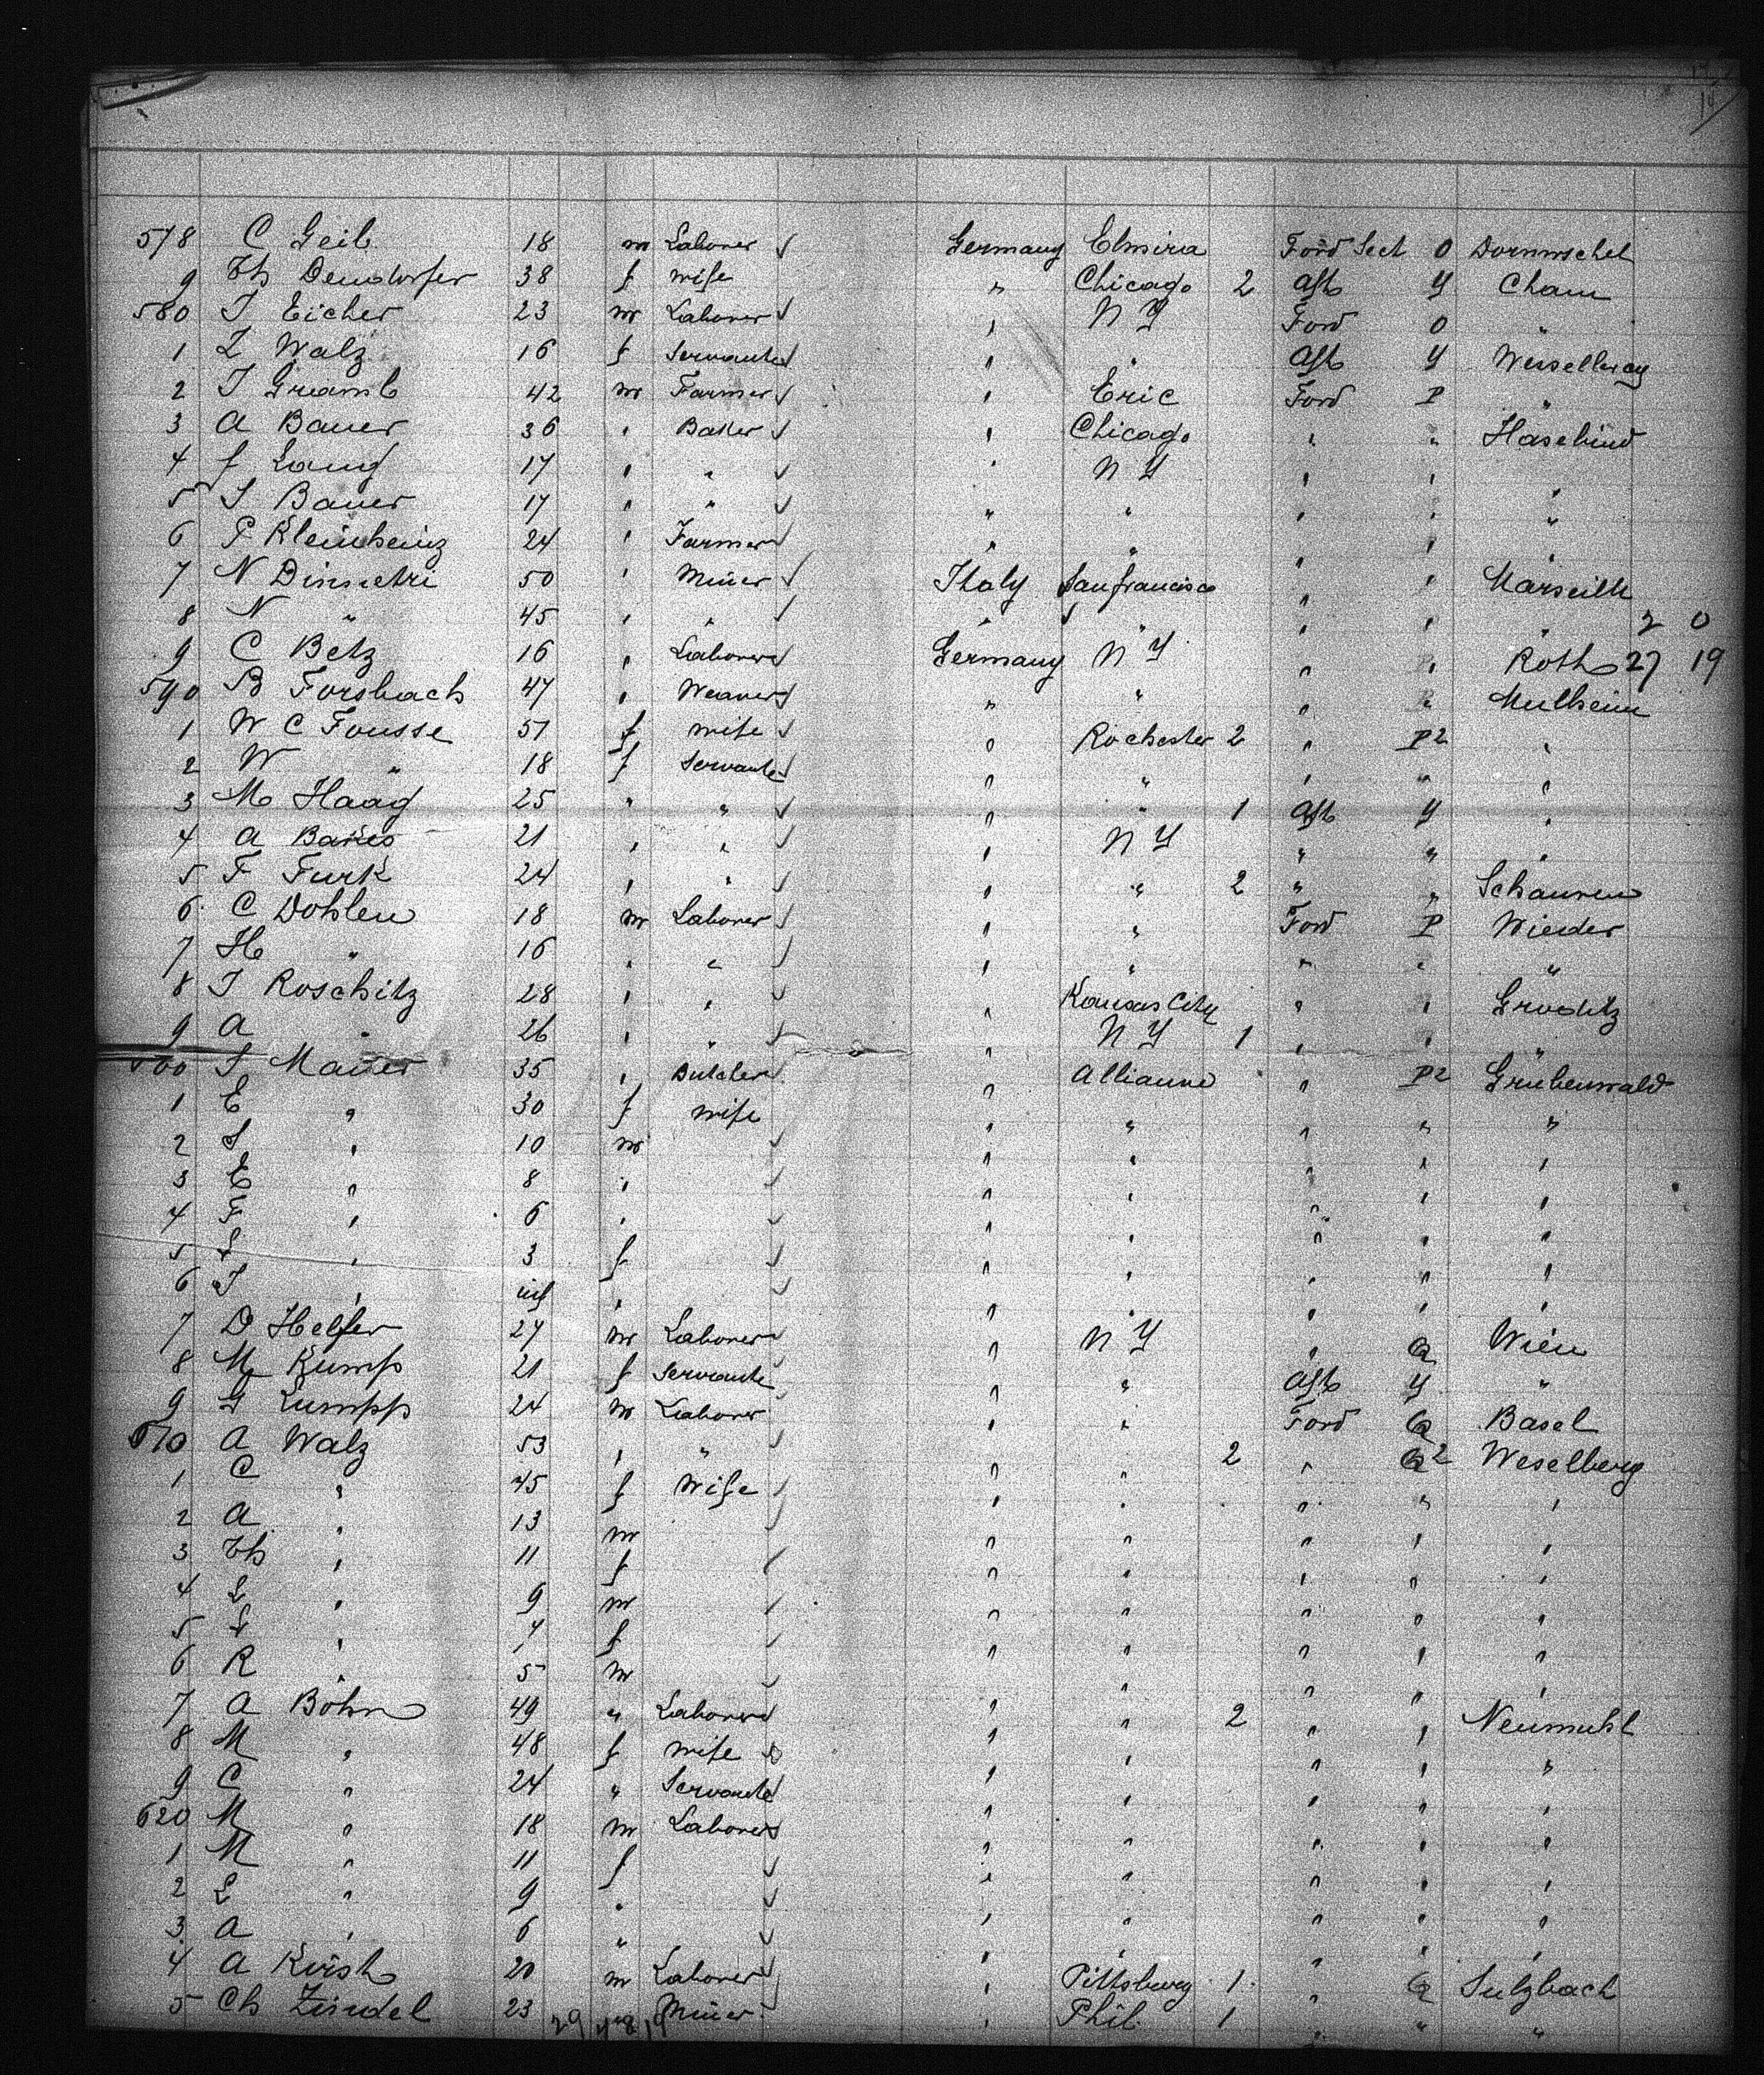 578 C Geib 18 m Laborer ✓ Germany Elmira Ford Sect O
9 Th Dendorfer 38 f wife " Chicago 2 Aft Y Cham
580 J Eicher 23 m Laborer ✓ " N Y Ford O "
1 L Walz 16 f Servante ✓ " " Aft Y
2 J Gramb 42 m Farmer ✓ " Erie Ford P "
3 A Bauer 36 " Baker ✓ " Chicago " "
4 f Lang 17 " " ✓ " N Y " " "
5 J Bauer 17 " " ✓ " " " " "
6 P Kleinheinz 24 " Farmer ✓ " " " " "
7 N Dimetri 50 " Miner ✓ Italy San francisco " " Marseille
8 N " 45 " " ✓ " " " " " 2 0
9 C Betz 16 " Laborer ✓ Germany N Y " " Roth 27 19
590 B Forsbach 47 " Weaver ✓ " " " " Mulheim
1 W C Fousse 51 f wife ✓ " Rochester 2 " P2 "
2 W " 18 f Servante ✓ " " " " "
3 M Haag 25 " " ✓ " " 1 Aft Y "
4 A 21 " " ✓ " N Y " " "
5 F Furk 24 " " ✓ " " 2 " " Schauren
6 C Dohlen 18 m Laborer ✓ " " Ford P Wieder
7 H " 16 " " ✓ " " " " "
8 J Roschitz 28 " " ✓ " Kansas City " " Groditz
9 A " 26 " " ✓ " N Y 1 " " "
600 J Mauer 35 " Butcher " " P2 Grubenwald
1 E " 30 f wife " " " " "
2 J " 10 m ✓ " " " " "
3 E " 8 " ✓ " " " " "
4 F " 6 " ✓ " " " " "
5 L " 3 f ✓ " " " " "
6 J " inf " ✓ " " " " "
7 D Helfer 27 m Laborer ✓ " N Y " Q Wien
8 M Kumpf 21 f Servante " " Aft Y "
9 G Lumpp 24 m Laborer " " Ford Q Basel
610 A Walz 53 " " ✓ " " 2 " Q2 Weselberg
1 C " 45 f Wife ✓ " " " " "
2 A " 13 m ✓ " " " " "
3 Th " 11 f ✓ " " " " "
4 L " 9 m ✓ " " " " "
5 L " 7 f ✓ " " " " "
6 R " 5 m ✓ " " " " "
7 A Böhm 49 " Laborer ✓ " " 2 " " Neumuhl
8 M " 48 f wife ✓ " " " " "
9 C " 24 " Servante ✓ " " " " "
620 M " 18 m Laborer ✓ " " " " "
1 M " 11 f ✓ " " " " "
2 L " 9 " ✓ " " " " "
3 A " 6 " ✓ " " " " "
4 A 20 m Laborer ✓ " Pittsburg 1 " Q Sulzbach
5 Ch Zindel 23 Miner " Phil. 1 " " "